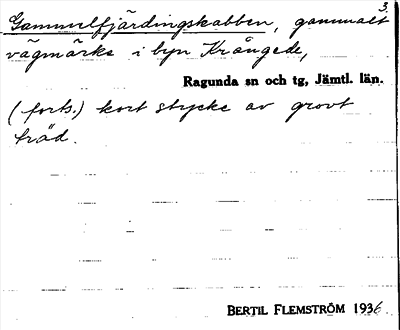 3.
Gammelfjärdingskabben, gammalt
vägmärke i byn Krångede,
Ragunda sn och tg, Jämtl. län.
(forts.) kort stycke av grovt
träd.
BERTIL FLEMSTRÖM 1936.